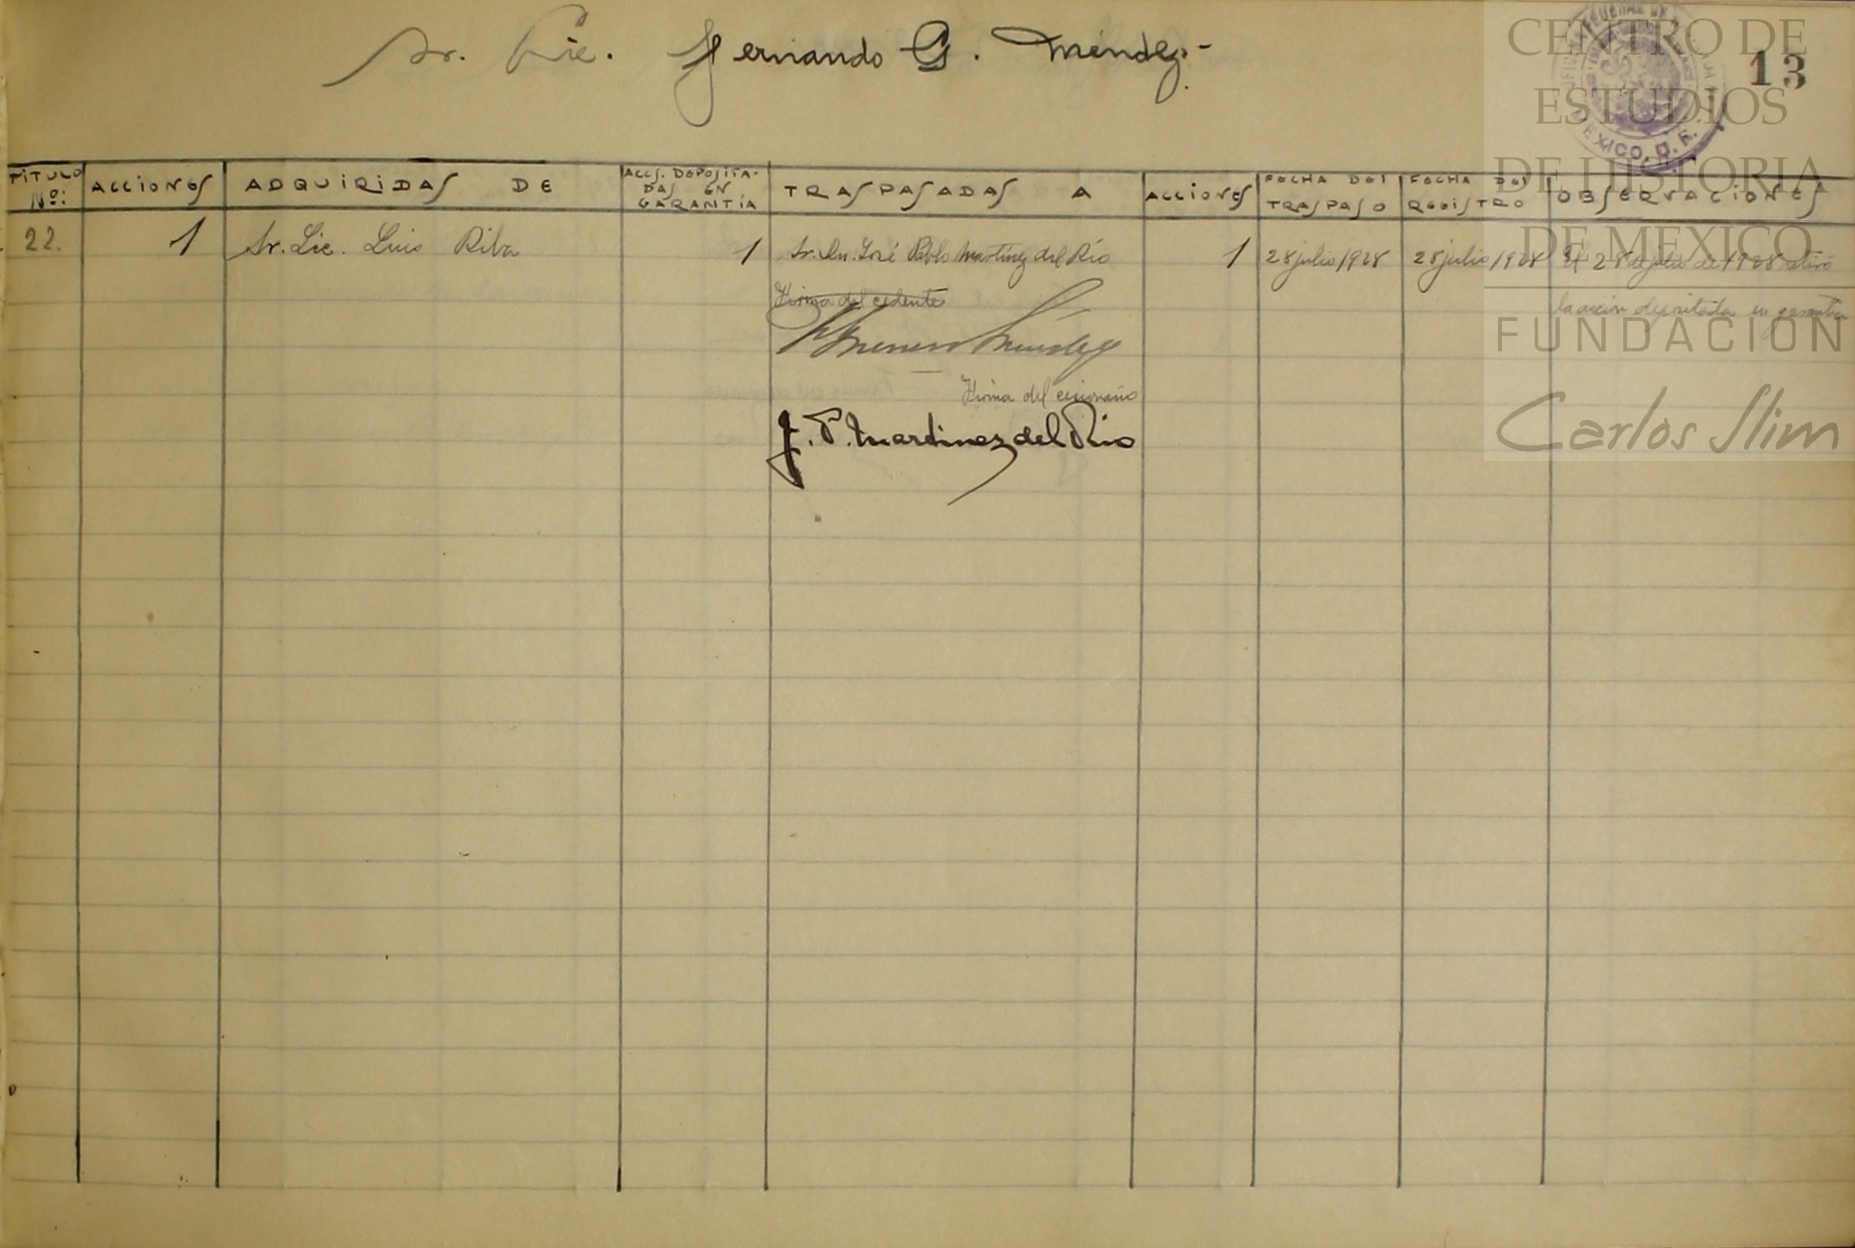 Sr. Lic. Fernando G. Méndez.-
13
CENTRO DE
ESTUDIOS
DE HISTORIA
DE MEXICO
FUNDACION
Carlos Slim
MEXICO, D. F.
TITULO Nº:
ACCIONES
ADQUIRIDAS DE
ACCS. DEPOSITA-
DAS EN
GARANTÍA
TRASPASADAS A
ACCIONES
FECHA DEL
TRASPASO
FECHA DEL
REGISTRO
OBSERVACIONES
22. 1 Sr. Lic. Luis Riba 1 Sr. Dn. José Pablo Martínez del Río 1 28 julio/1928 28 julio/1928 El 28 de julio de 1928 retiró
la acción depositada en garantía
Firma del cedente
Firma del cesionario
J. P. Martinez del Rio